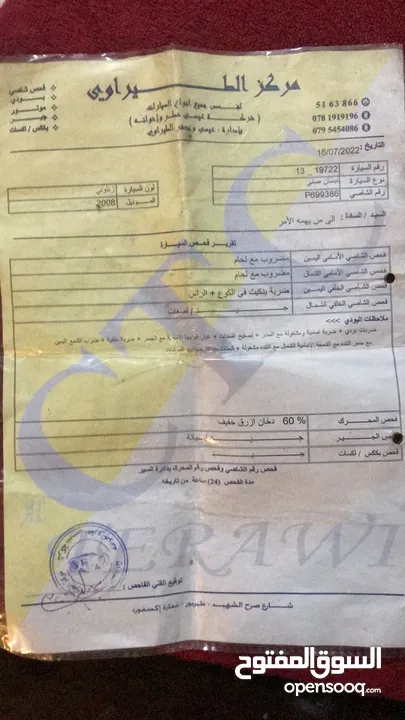 مركز الطيراوي
لفحص جميع انواع السيارات
(شركة عيسى مطر واخوانه)
بإدارة: عيسى وجعفر الطيراوي
51 63 866
078 1919196
079 5454086
فحص شاصي
بودي
موتور
جير
بكتس / اكسات
التاريخ: 16/07/2022
رقم السيارة 13 _ 19722
نوع السيارة نيسان صني
رقم الشاصي P699386
لون السيارة زيتوني
الموديل 2008
السيد / السادة: الى من يهمه الأمر
تقرير فحص السيارة
فحص الشاصي الأمامي اليمين مضروب مع لحام
فحص الشاصي الأمامي الشمال مضروب مع لحام
فحص الشاصي الخلفي اليمين ضربة بتكيت في الكوع + الراس
فحص الشاصي الخلفي الشمال جيد / لصعات
ملاحظات البودي >>>
فحص المحرك 60 % دخان ازرق خفيف
فحص الجير
فحص بككس / اكسات جيد
فحص رقم الشاصي وفحص رقم المحرك بدائرة السير
مدة الفحص (24) ساعة من تاريخه
CTC
TERAWI
توقيع الفني الفاحص:
شارع صرح الشهيد - طبربور - عمارة إكسفورد
السوق المفتوح
opensooq.com